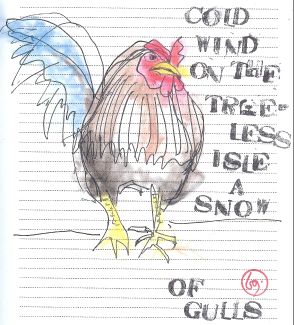 COLD
WIND
ON THE
TREE-
LESS
ISLE
A
SNOW
OF
GULLS